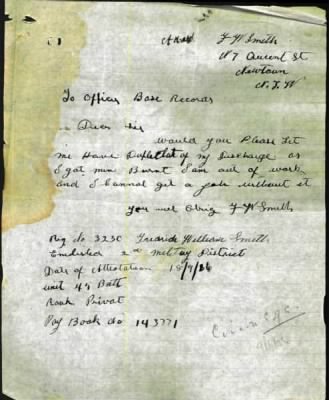 F W Smith
N 7 Aucent St
Newtown
N. S. W
To Officer Base Records
Dear Sir
Would you Please Let
me Have Duplicat of my Discharge as
I got min Burnt I am out of work
and I cannot get a job without it
you will Oblig F W Smith
Reg No 3230 William Smith
Enlisted 2nd Miltay District
Date of Attestation 18/9/16
unit 45 Batt
Rank Privat
Pay Book No 143771